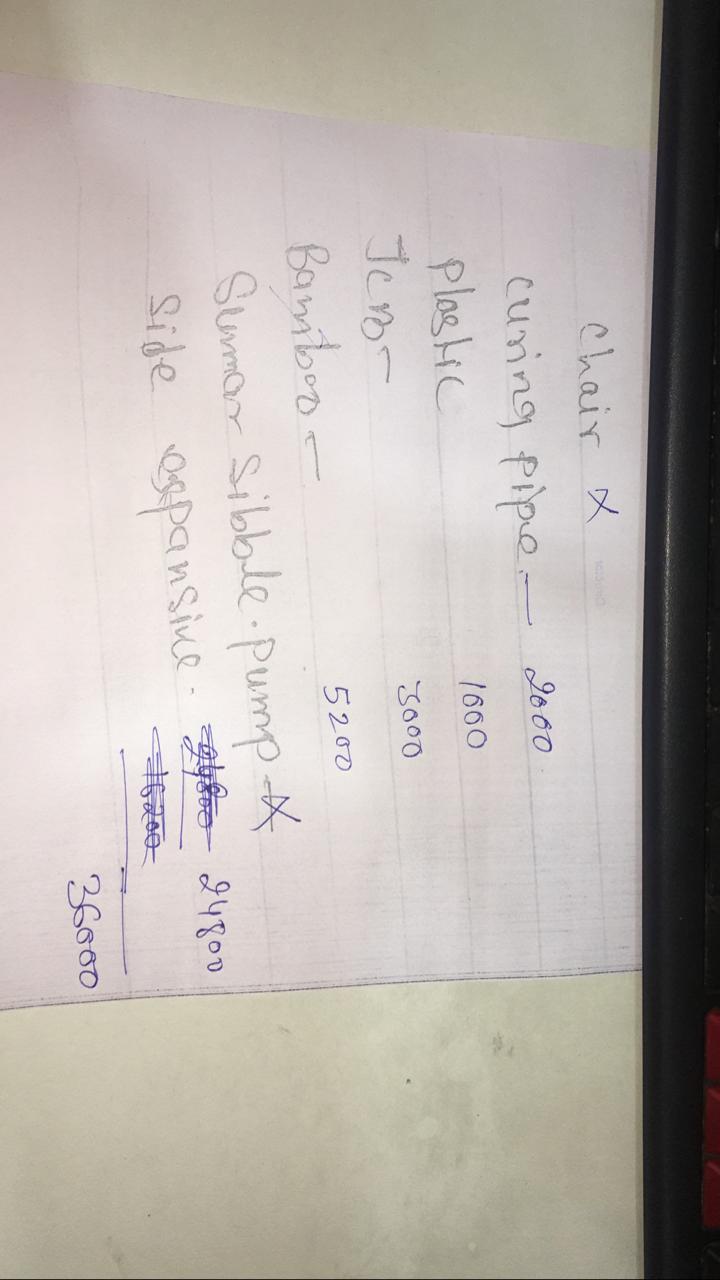 Chair X
Curing pipe - 2000
plastic 1000
JCB - 3000
Bamboo - 5200
Summar Sibbale.pump - X
Side expansive. 24800
36000